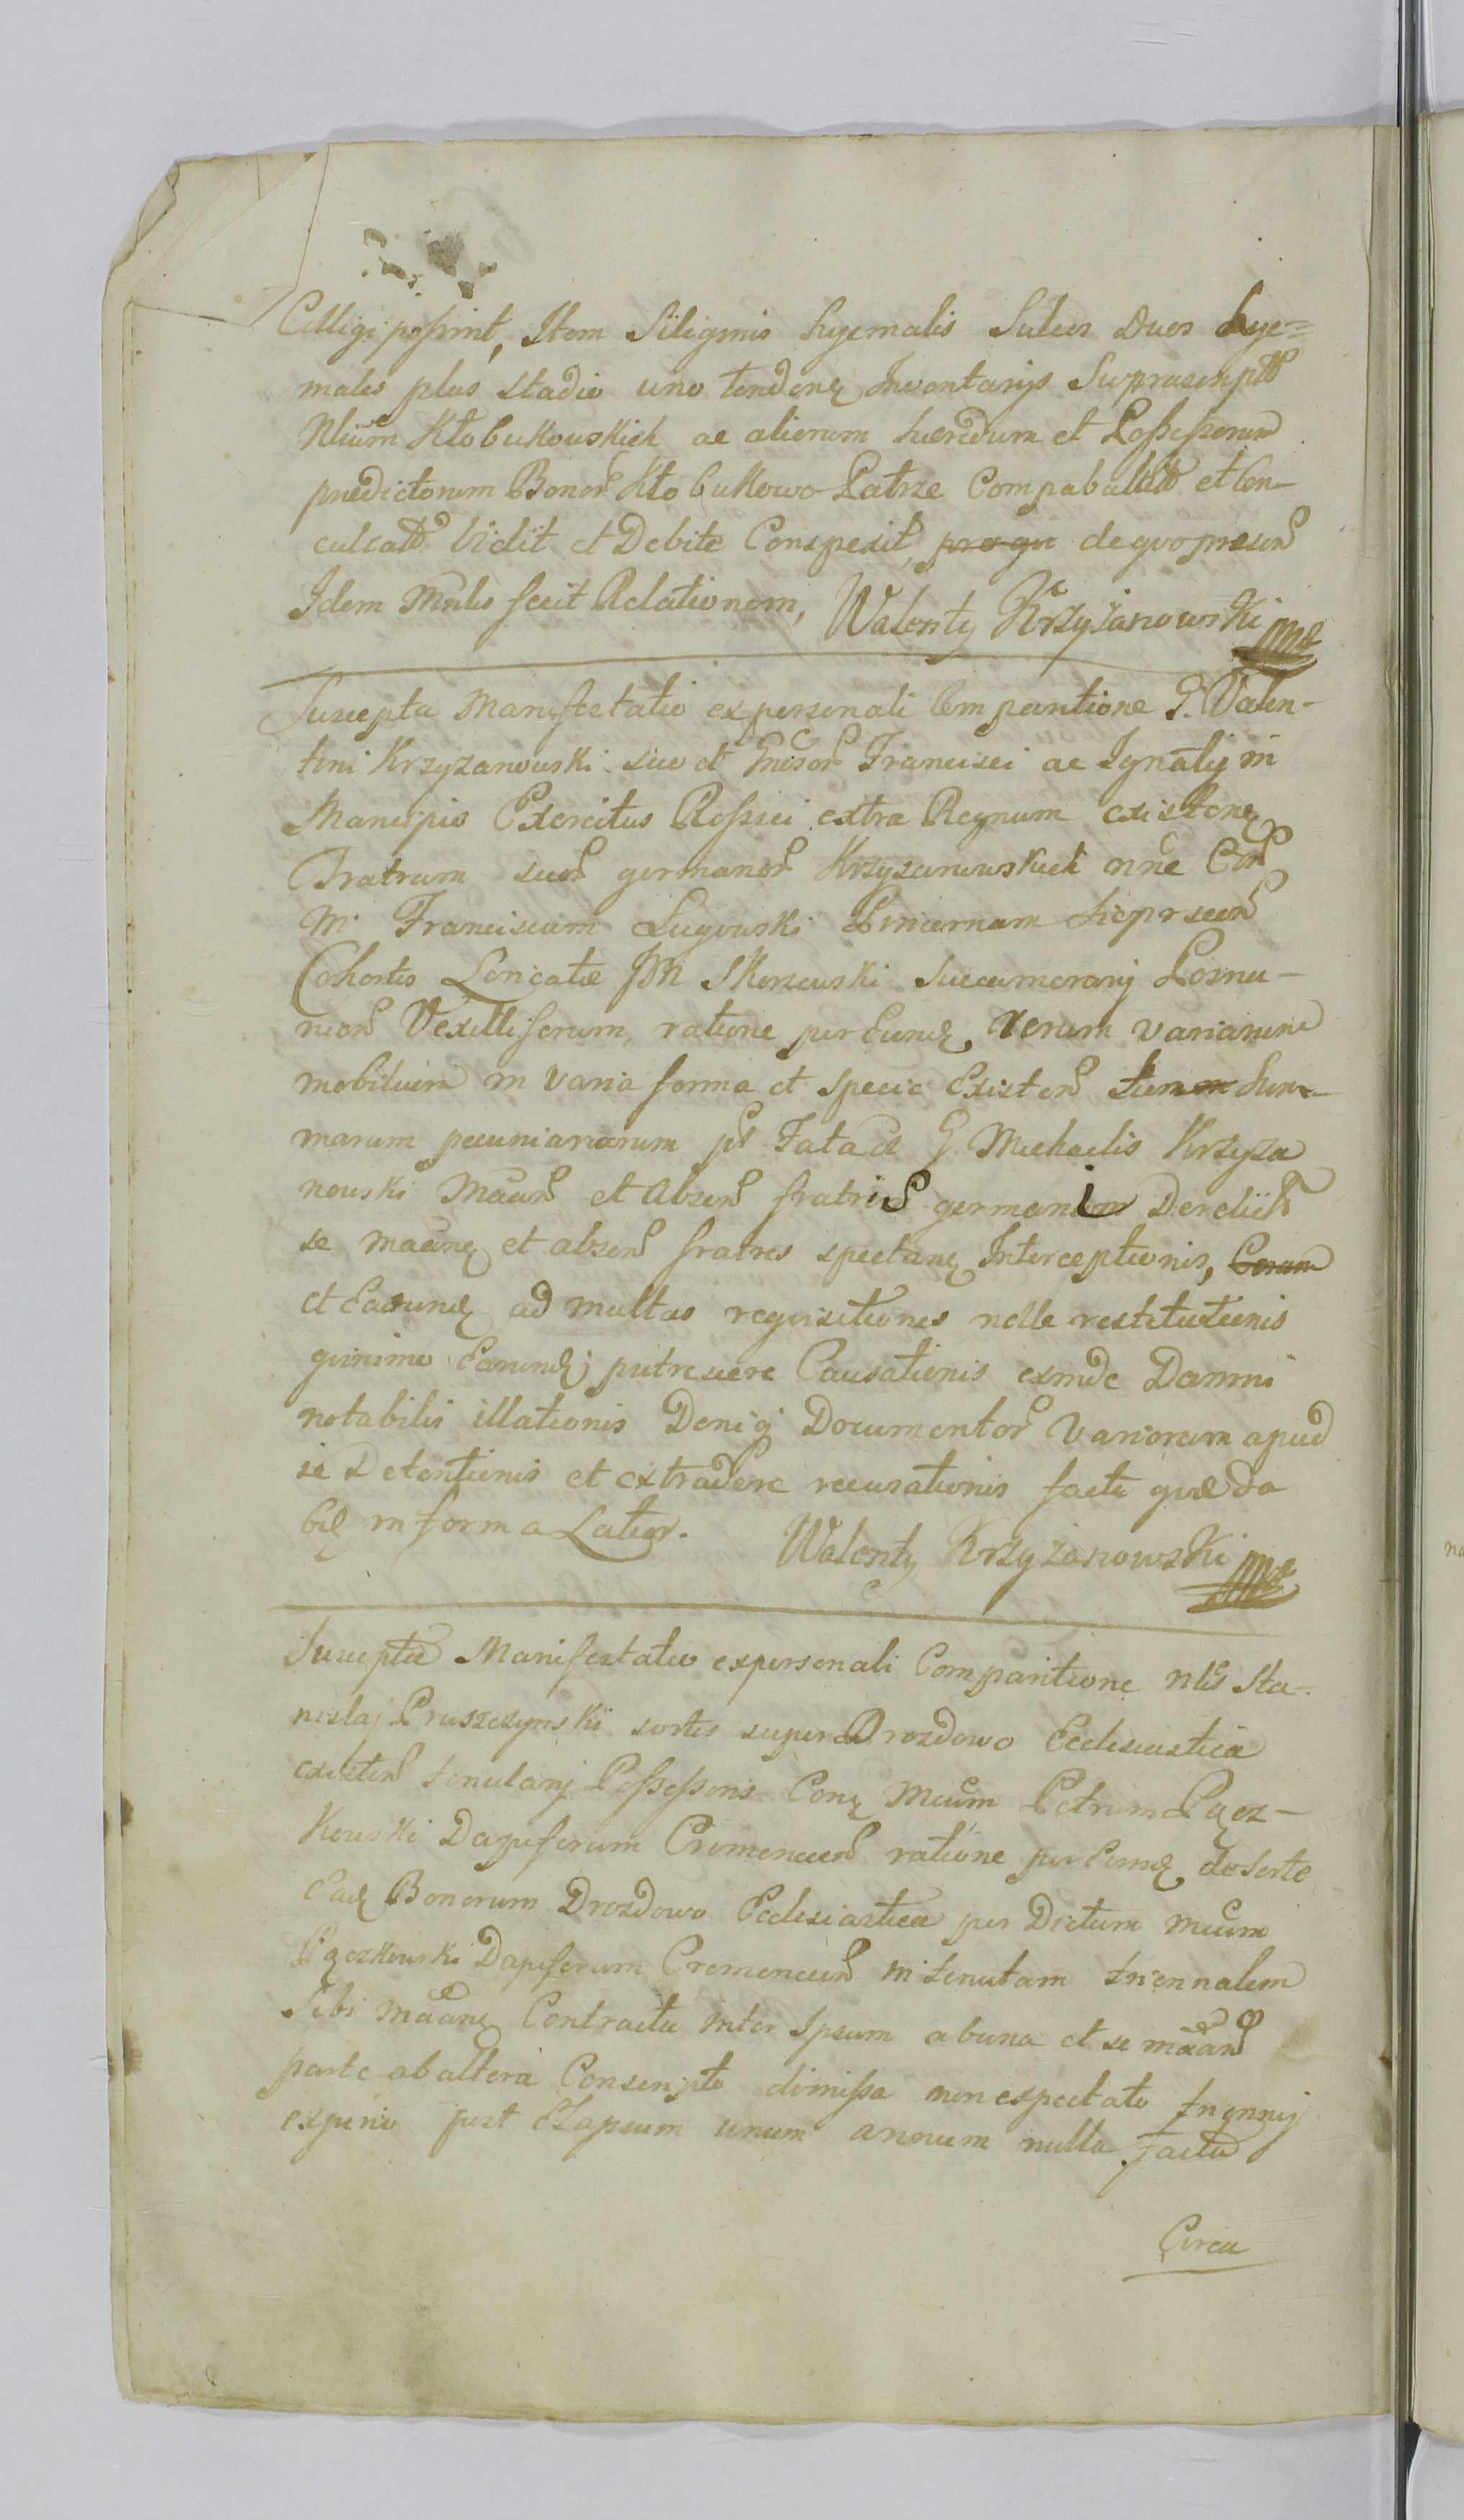 Colligi possint, Item Siliginis hyemalis Sulcos Duos hye=
males plus stadio uno tendenę Inventarijs Suprascriptt
Nlium Kłobukowskich ac aliorum haeredum et Possessorum
praedictorum Bonor Kłobukowo Patrze Compabulatt et con-
culcatt Vidit et Debite Conspexit, pro qu de quo praesens
Idem Mnlis fecit Relationem, Walenty Krzyżanowski mp
Suscepta Manifestatio ex personali Comparitione G. Valen-
tini Krzyzanowski suo et Gnosor Francisci ac Ignatij in
Mancipio Exercitus Rossici extra Regnum existenę
Fratrum suor germanor Krzyzanowskich nne Con
M. Franciscum Ługowski Pincernam
Cohortis Loricatae JM Skorzewski Succamerarij Posna-
nien Vexilliferum, ratione per Eundę rerum variarum
mobilium in varia forma et specie Existen Sum-
marum pecuniariarum pt Fata ol G. Michaelis Krzyza
nowski Maan et Absen fratris germani Derelict
se maanę et absen fratres spectanę Interceptionis,
et Earundę ad multas requisitiones nolle restitutionis
quinimo Earundę putrescere Causationis exinde Damni
notabilis illationis Deniq Documentor Variorum apud
se Detentionis et extradere recusationis facta quae da
bię in forma Latior. Walenty Krzyżanowski mp
Suscepta Manifestatio ex personali Comparitione Nlis Sta-
nislaj Pruszczynski sortis super Drozdowo Ecclesiastica
existen tenutarij Possessoris Conę Mcum Petrum Pącz-
kowski Dapiferum Cremenecen ratione per Eundę de sorte
Eadę Bonorum Drozdowo Ecclesiastica per Dictum Mcum
Pączkowski Dapiferum Cremenecen in tenutam triennalem
Sibi Maanę Contractu inter Ipsum ab una et se maan
parte ab altera Conscripto dimissa non expectato triennij
expirio post Elapsum unum annum nulla facta
Circa